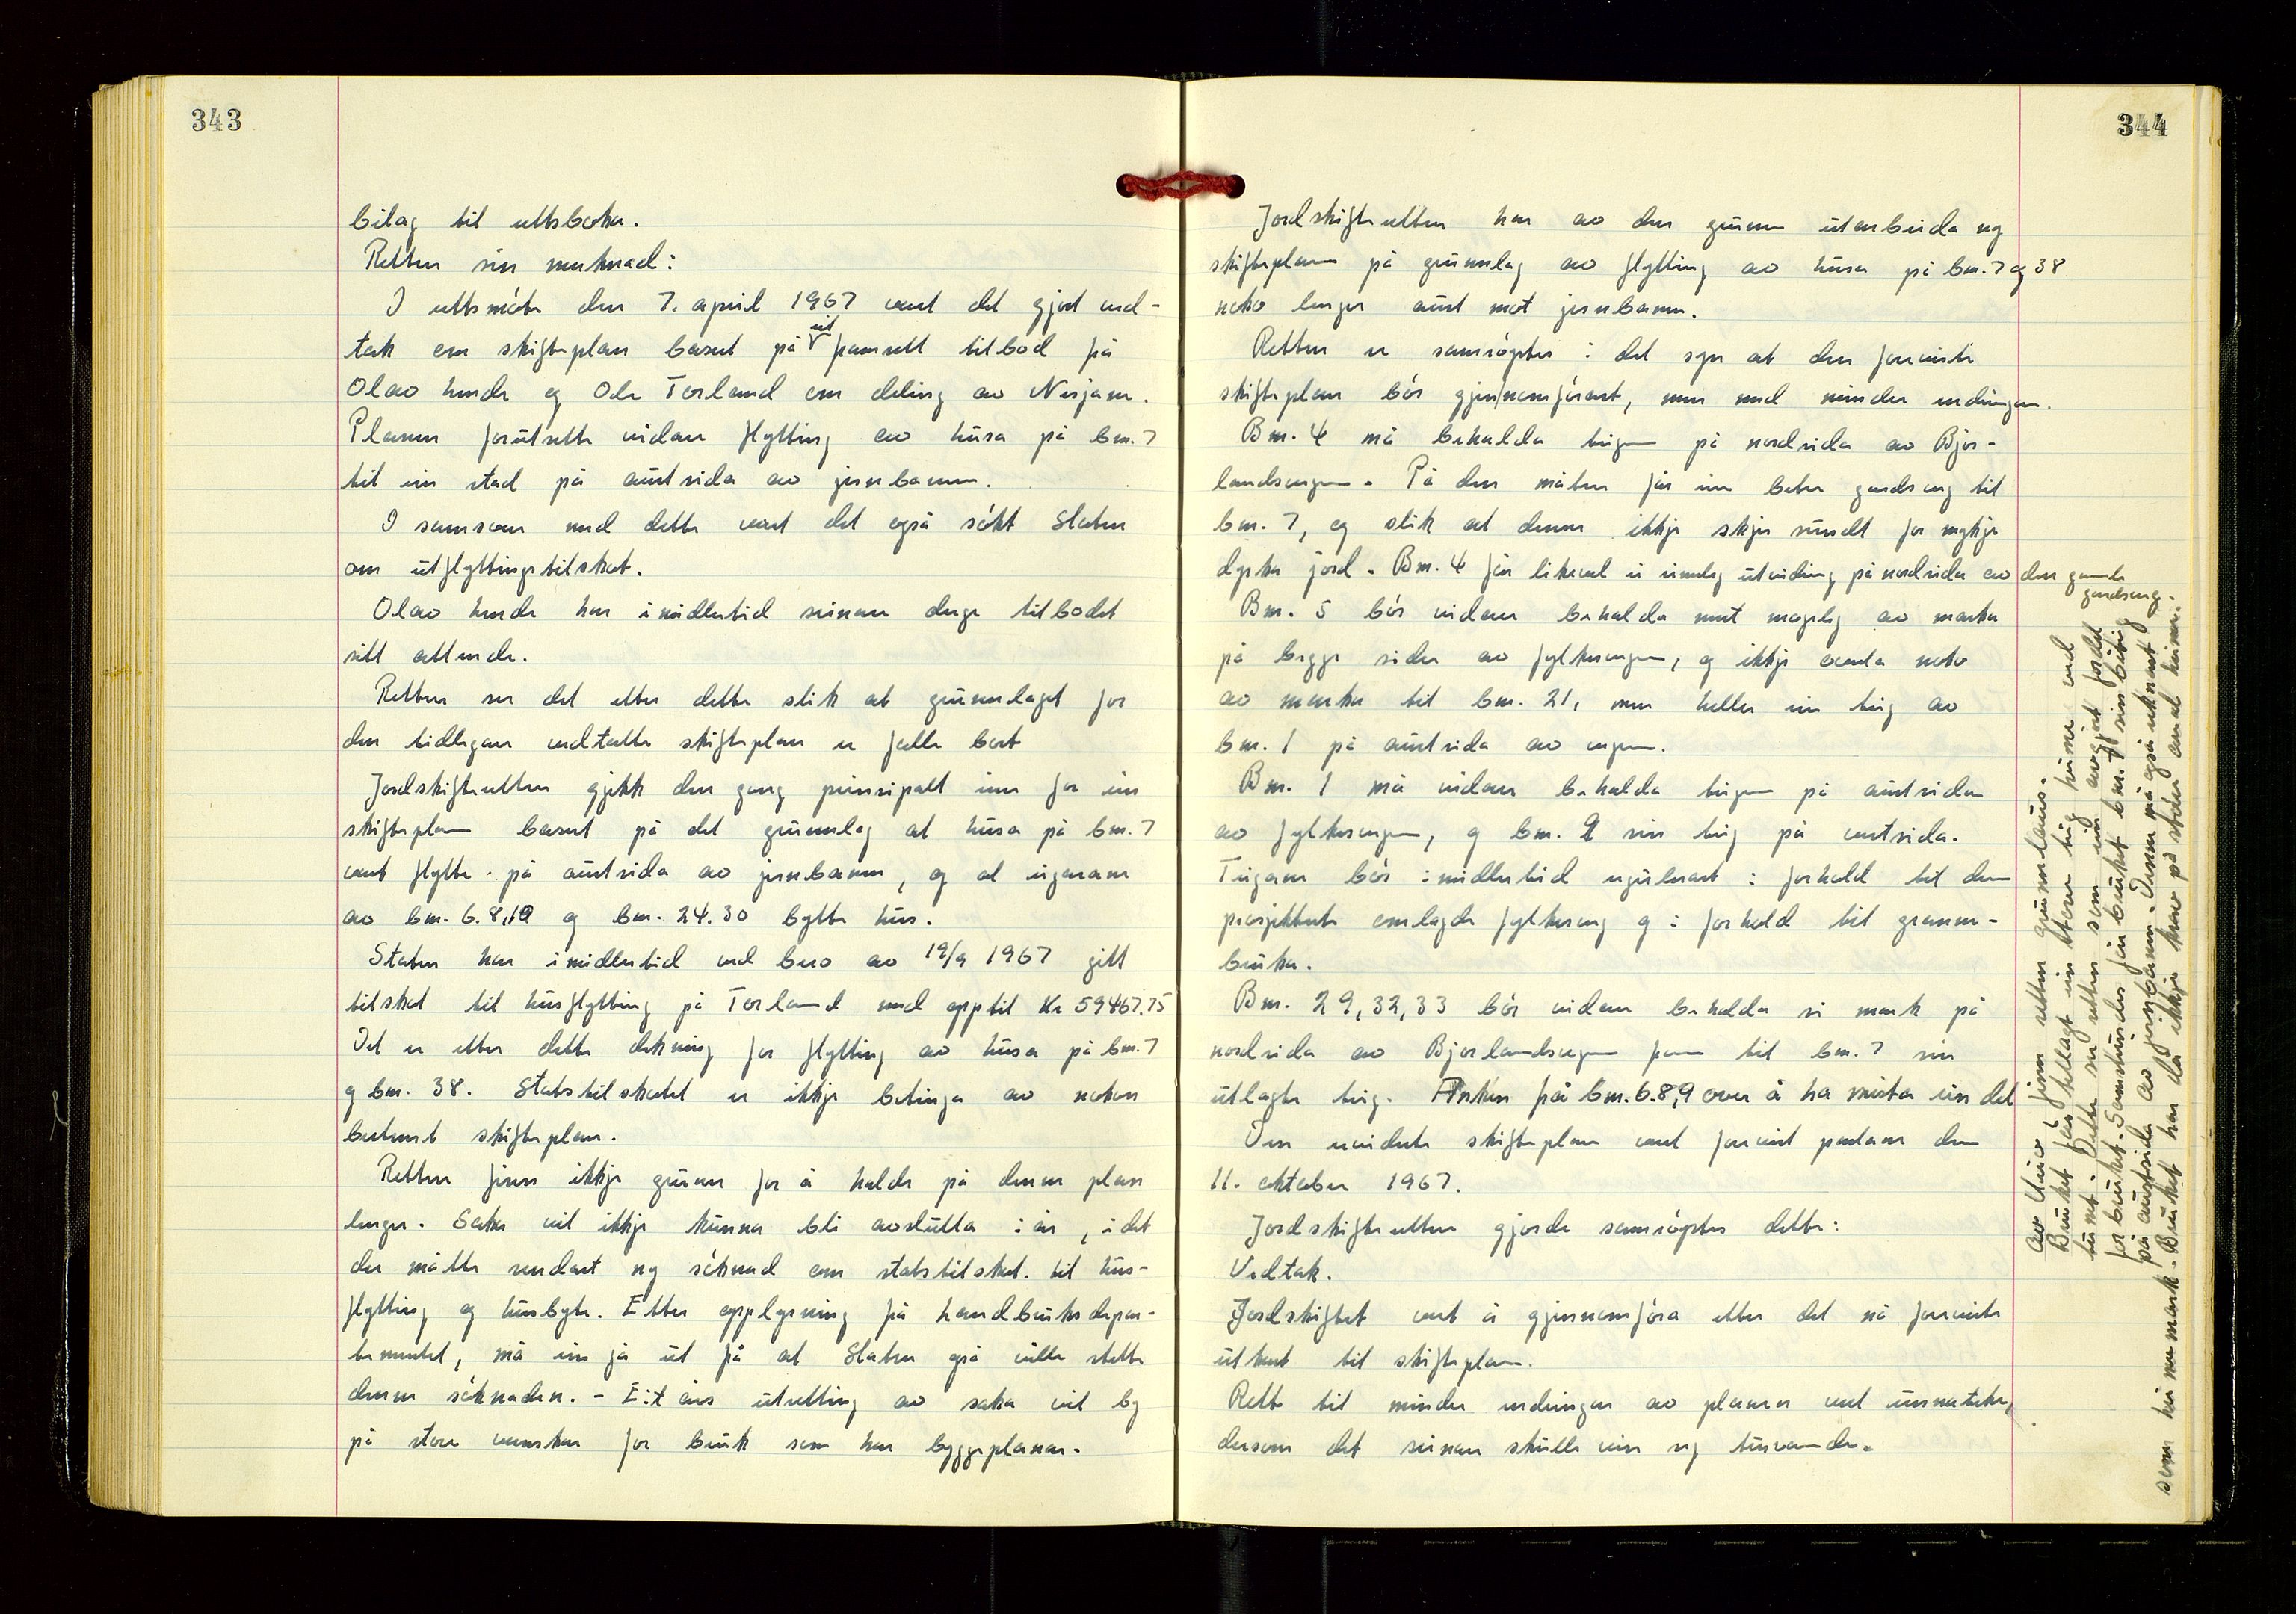 343
bilag til rettsboka.
Retten sin merknad:
I rettsmøte den 7. april 1967 vart det gjort ved-
tak om skifteplan basert på eit framsett tilbod frå
Olav Lende og Ole Torland om deling av Nesjane.
Planen forutsette vidare flytting av husa på bm. 7
til ein stad på austsida av jernbanen.
I samsvar med dette vart det også søkt Staten
om utflyttingstilskot.
Olav Lende har imidlertid seinare drege tilbodet
sitt attende.
Retten ser det etter dette slik at grunnlaget for
den tidlegare vedtatte skifteplan er falle bort
Jordskifteretten gjekk den gong prinsipalt inn for ein
skifteplan basert på det grunnlag at husa på bm. 7
vart flytte på austsida av jernbanen, og at eigarane
av bm. 6.8,19 og bm. 24.30 bytte hus.
Staten har imidlertid ved brev av 19/9 1967 gitt
tilskot til husflytting på Torland med opptil kr 59467.75
Det er etter dette dekning for flytting av husa på bm. 7
og bm. 38. Statstilskotet er ikkje betinga av nokon
bestemt skifteplan.
Retten finn ikkje grunn for å halde på denne plan
lenger. Saka vil ikkje kunna bli avslutta i år, idet
der måtte sendast ny søknad om statstilskot til hus-
flytting og husbyte. Etter opplysning frå Landbruksdepar-
tementet, må ein gå ut frå at Staten også ville støtte
denne søknaden. - Eit års utsetting av saka vil by
på store vansker for bruk som har byggeplanar.
344
Jordskifteretten har av den grunn utarbeida ny
skifteplan på grunnlag av flytting av husa på bm. 7 og 38
noko lenger aust mot jernbanen.
Retten er samrøystes i det syn at den foreviste
skifteplan bør gjennomførast, men med mindre endringar.
Bm. 4 må behalda teigen på nordsida av Bjor-
landsvegen. På den måten får ein betre gardsveg til
bm. 7, og slik at denne ikkje skjer sundt for mykje
dyrka jord. Bm. 4 får likevel ei rimeleg utviding på nordsida av den gamle
gardsveg.
Bm. 5 bør vidare behalda mest mogeleg av marka
på begge sider av fylkesvegen, og ikkje avstå noko
av marka til bm. 21, men heller ein teig av
bm. 1 på austsida av vegen.
Bm. 1 må vidare behalda teigen på austsida
av fylkesvegen, og bm. 2 sin teig på vestsida.
Teigane bør imidlertid regulerast i forhold til den
prosjekterte omlagde fylkesveg og i forhold til granne-
bruka.
Bm. 29, 32, 33 bør vidare behalda si mark på
nordsida av Bjorlandsvegen fram til bm. 7 sin
utlagte teig. Anken frå bm. 6.8,9 over å ha mista ein del
av Unico finn retten grunnlaus.
Bruket får tillagt ein større teig heime ved
tunet. Dette ser retten som ein avgjort fordel
for bruket. Samstundes får bruket bm. 7 sin teig
på austsida av jernbanen. Denne må også reknast
som heimemark. Bruket har då ikkje krav på større areal heime.
Den reviderte skifteplan vart forevist partane den
11. oktober 1967.
Jordskifteretten gjorde samrøystes dette:
Vedtak.
Jordskiftet vert å gjennomføra etter det nå foreviste
utkast til skifteplan.
Rett til mindre endringar av planen vert unnateke,
dersom det seinare skulle vise seg turvande.